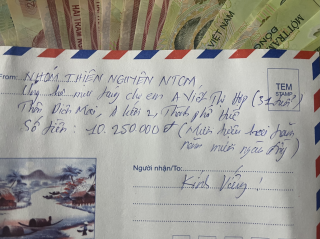 VIỆT NAM
MỘT TRĂM
ĐỒNG
From: NHÓM THIỆN NGUYỆN NTCM,
TEM
STAMP
chị em A Viết Thị Hợp (31 tuổi)
Thôn Dích Mới, A lưới 2, Thành phố Huế
Số tiền: 10.250.000đ (Mười triệu hai trăm
năm mươi ngàn đồng)
Người nhận/To:
Kính Viếng!